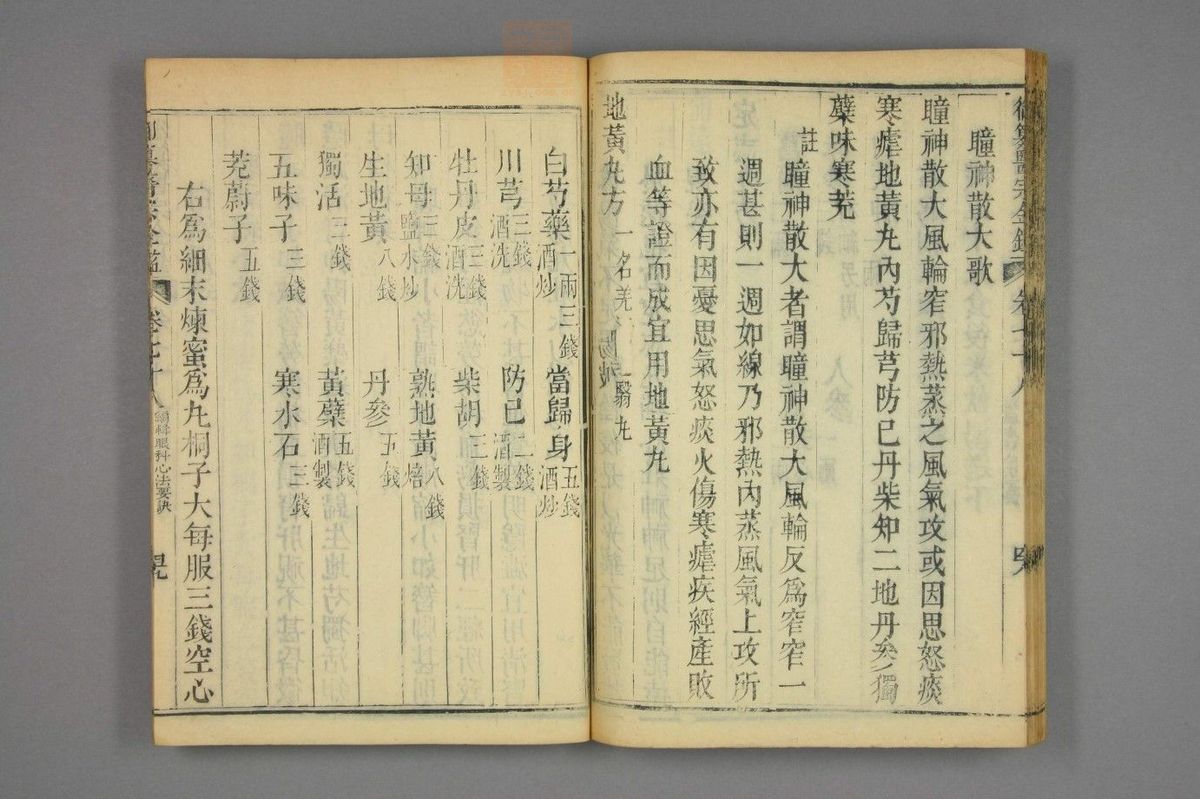 御纂醫宗金鑑 卷七十八
瞳神散大歌
瞳神散大風輪窄邪熱蒸之風氣攻或因思怒痰
寒瘧地黃丸內芍歸芎防己丹柴知二地丹參獨
蘗味寒茺
註 瞳神散大者謂瞳神散大風輪反為窄窄一
週甚則一週如線乃邪熱內蒸風氣上攻所
致亦有因憂思氣怒痰火傷寒瘧疾經產敗
血等證而成宜用地黃丸
地黃丸方 一名羌 翳丸
白芍藥 一兩三錢酒炒 當歸身 五錢酒炒
川芎 三錢酒洗 防己 二錢酒製
牡丹皮 三錢酒洗 柴胡 三錢
知母 三錢鹽水炒 熟地黃 八錢焙
生地黃 八錢 丹參 五錢
獨活 三錢 黃蘗 五錢酒製
五味子 三錢 寒水石 三錢
茺蔚子 五錢
右為細末煉蜜為丸桐子大每服三錢空心
卷七十八 編輯眼科心法要訣